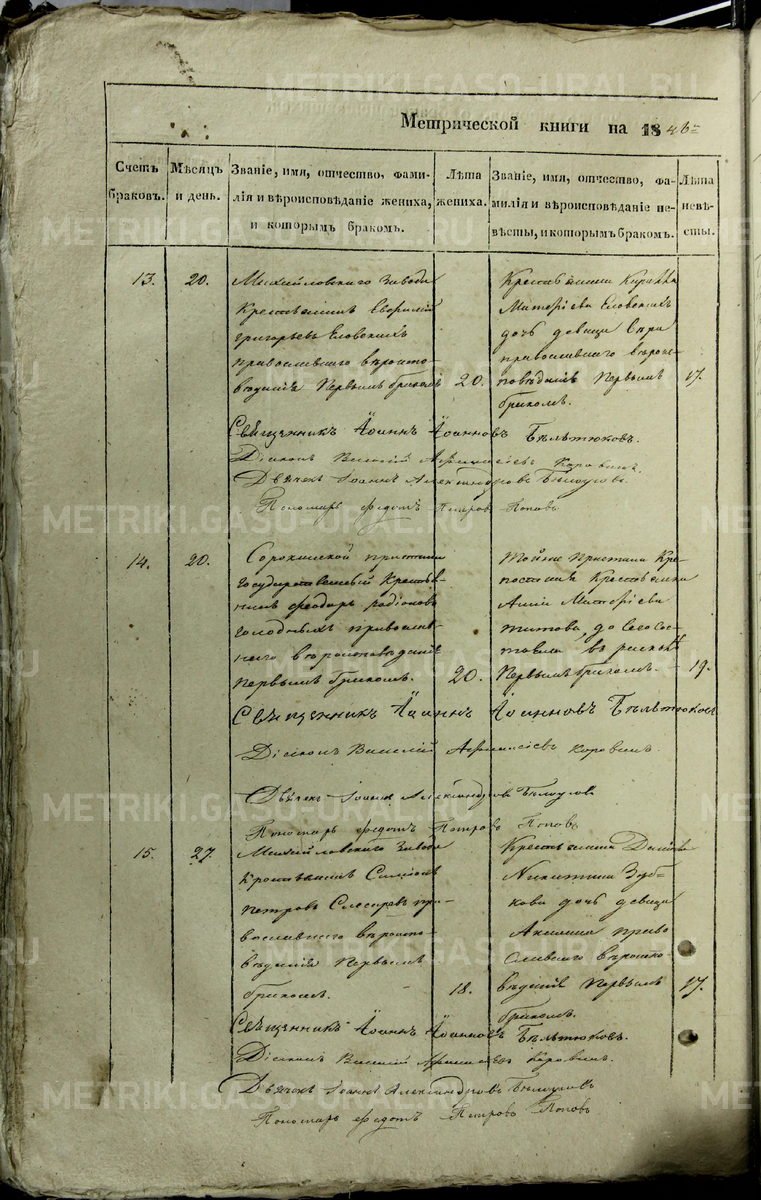 Метрической книги на 1846-
Счетъ браковъ.
Мѣсяцъ и день.
Званіе, имя, отчество, фами-
лія и вѣроисповѣданіе жениха,
и которымъ бракомъ.
Лѣта жениха.
Званіе, имя, отчество, фа-
милія и вѣроисповѣданіе не-
вѣсты, и которымъ бракомъ.
Лѣта невѣ-
сты.
13.
20.
Михайловскаго завода
Крестьянинъ
Григорьевъ Еловскихъ
православнаго вѣроиспо-
вѣданія Первымъ бракомъ
20.
Крестьянина
Еловскихъ
дочь девица
православнаго вѣроис-
повѣданія Первымъ
бракомъ.
17.
Священникъ Іоаннъ Іоанновъ Бѣльтюковъ.
Діаконъ Василій Коровинъ.
Дьячекъ Іоаннъ Александровъ Бѣлоусовъ
Пономарь Федотъ Петровъ Поповъ
14.
20.
Сорокинской пристани
государственный Крестья-
нинъ Феодоръ Родіоновъ
Голодныхъ православ-
наго вѣроисповѣданія
Первымъ бракомъ.
20.
Тойже Пристани Кре-
постная Крестьянка
Анна
Титова, до сего сос-
тояла въ расколѣ
Первымъ бракомъ.
19.
Священникъ Іоаннъ Іоанновъ Бѣльтюковъ
Діаконъ Василій Коровинъ.
Дьячекъ Іоаннъ Александровъ Бѣлоусовъ
Пономарь Федотъ Петровъ Поповъ
15.
27.
Михайловскаго Завода
Крестьянинъ
Петровъ Слесаревъ пра-
вославнаго вѣроиспо-
вѣданія Первымъ
бракомъ.
18.
Крестьянина
Никитина Зуб-
кова дочь девица
право
славнаго вѣроиспо-
вѣданія Первымъ
бракомъ.
17.
Священникъ Іоаннъ Іоанновъ Бѣльтюковъ.
Діаконъ Василій Коровинъ.
Дьячекъ Іоаннъ Александровъ Бѣлоусовъ
Пономарь Федотъ Петровъ Поповъ
METRIKI.GASO-URAL.RU